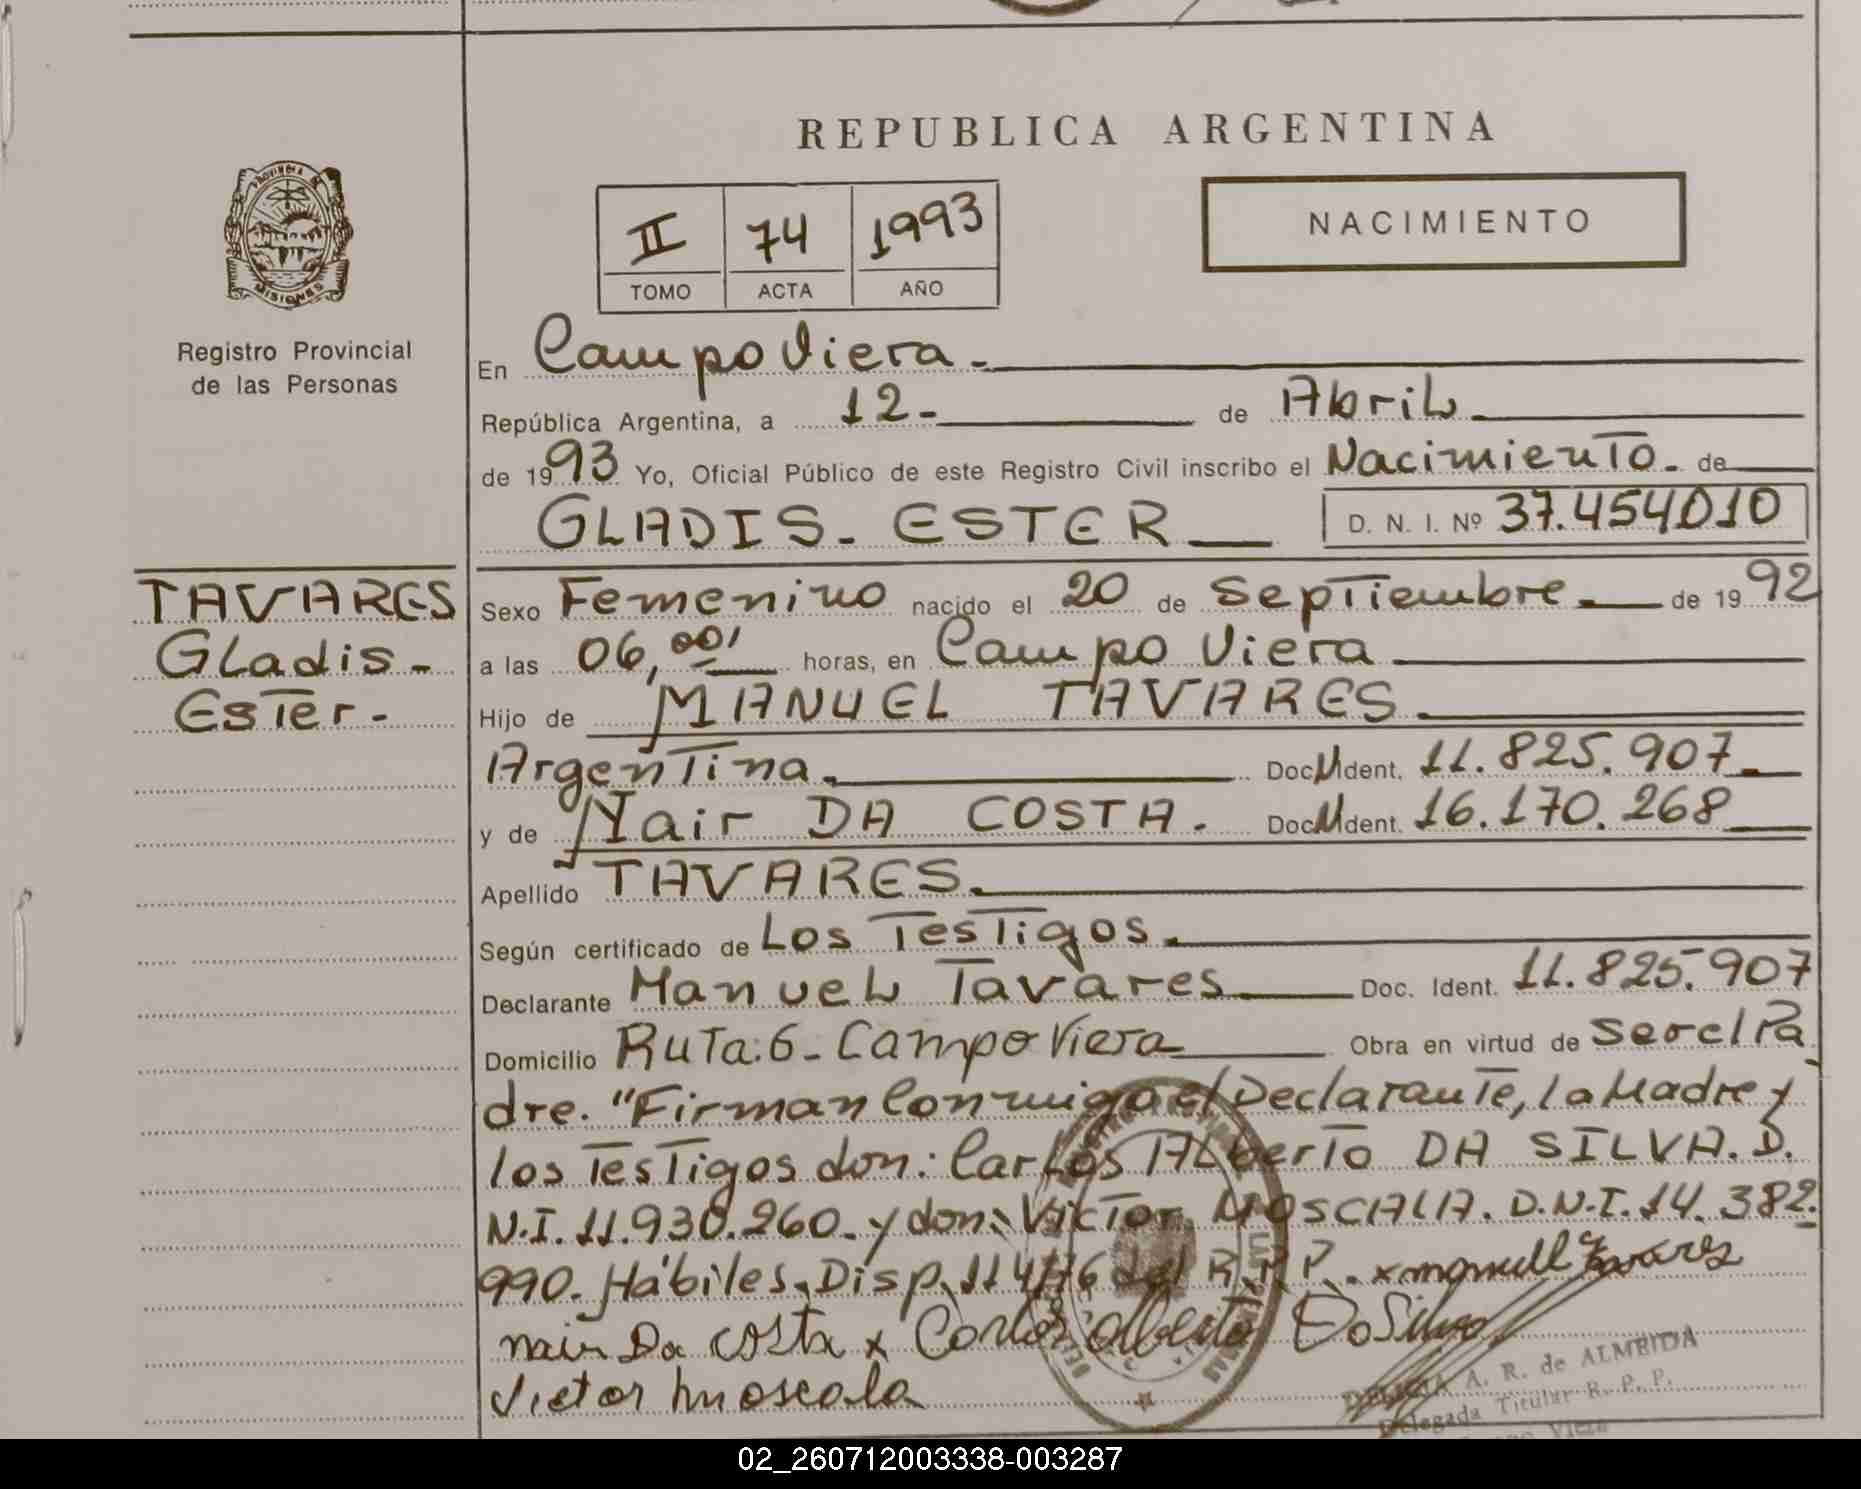 REPUBLICA ARGENTINA
PROVINCIA DE
MISIONES
Registro Provincial
de las Personas
II 74 1993
TOMO ACTA AÑO
NACIMIENTO
En Campo Viera.
República Argentina, a 12- de Abril
de 1993 Yo, Oficial Público de este Registro Civil inscribo el Nacimiento. de
GLADIS. ESTER D. N. I. Nº 37.454010
TAVARES
Gladis.
Ester.
Sexo Femenino nacido el 20 de Septiembre. de 1992
a las 06,00' horas, en Campo Viera
Hijo de MANUEL TAVARES.
Argentina. Doc. Ident. 11.825.907.
y de Nair DA COSTA. Doc. Ident. 16.170.268
Apellido TAVARES.
Según certificado de Los Testigos.
Declarante Manuel Tavares Doc. Ident. 11.825.907
Domicilio Ruta:6- Campo Viera Obra en virtud de ser el Pa
dre. "Firman Conmigo el Declarante, la Madre y
los Testigos don: Carlos Alberto DA SILVA. D.
N.I. 11.930.260. y don: Victor MOSCALA. D.N.I. 14.382.
990. Hábiles. Disp. 114/76 del R.P.P. x manuell tavarez
nair Da costa x Carlos alberto Da Silva
Victor moscala
A. R. de ALMEIDA
Delegada Titular R. P. P.
Viera
02_260712003338-003287